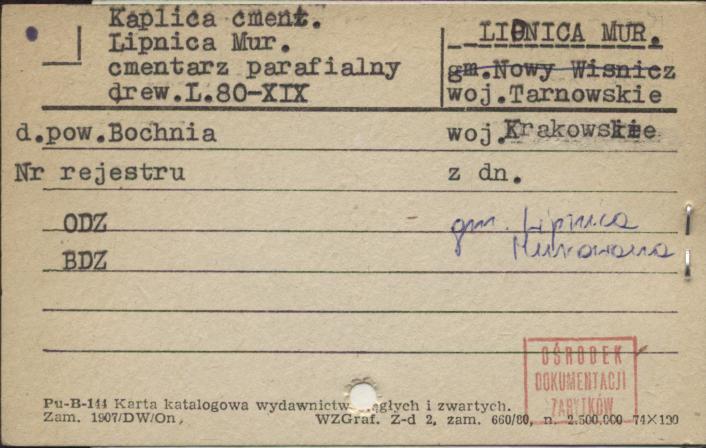 Kaplica cment.
Lipnica Mur.
cmentarz parafialny
drew.L.80-XIX
LIPNICA MUR.
gm.Nowy Wisnicz
woj.Tarnowskie
d.pow.Bochnia
woj.Krakowskie
Nr rejestru
z dn.
ODZ
gm. Lipnica
Murowana
BDZ
OŚRODEK
DOKUMENTACJI
ZABYTKÓW
Pu-B-144 Karta katalogowa wydawnictw ciągłych i zwartych.
Zam. 1907/DW/On, WZGraf. Z-d 2, zam. 660/80, n. 2.500.000 74×120